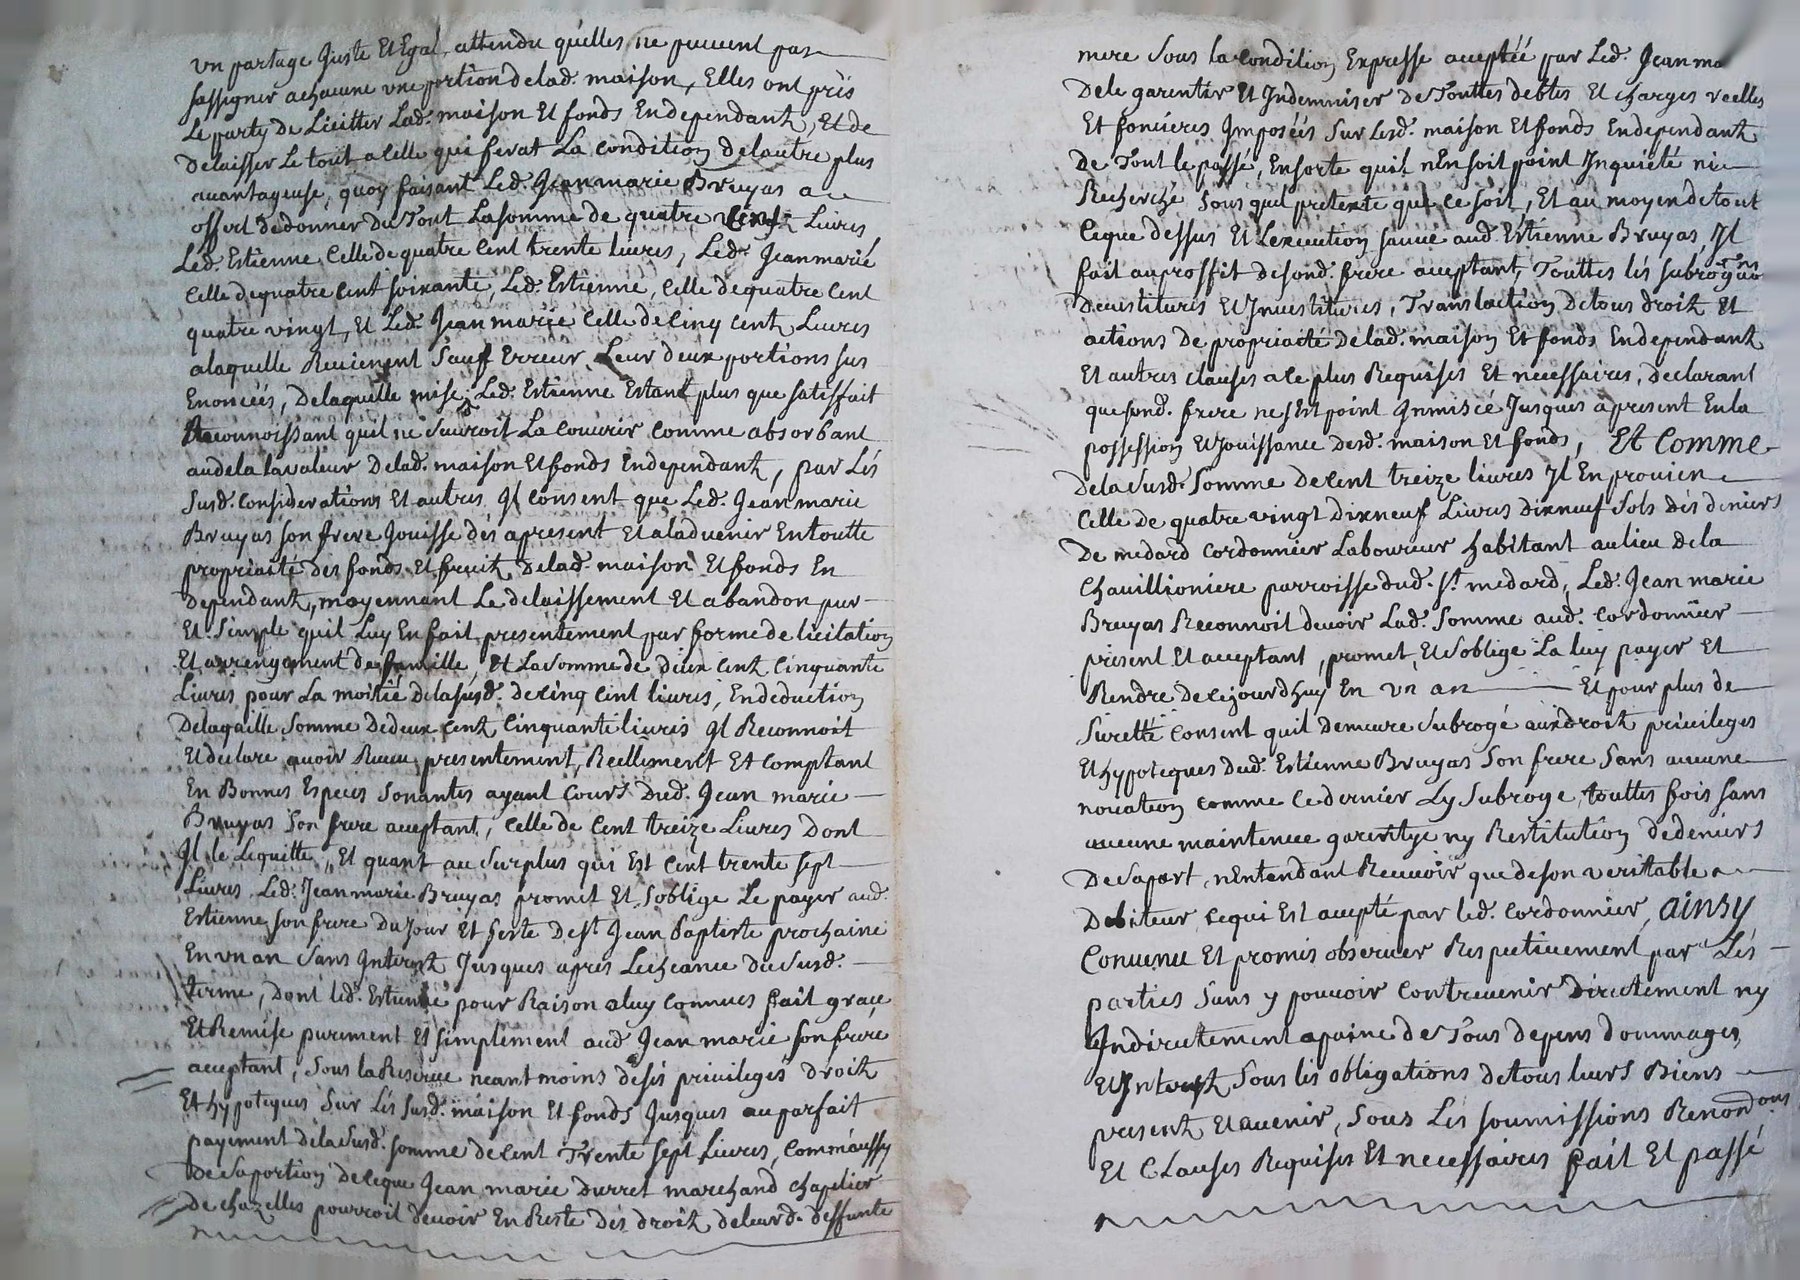 un partage Juste Et Egal attendu qu'elles ne peuvent pas
sassigner a chacune une portion delad. maison, Elles ont pris
Le party de Liciter Lad. maison Et fonds En dependantz, Et de
delaisser Le tout a celle qui ferat La condition delautre plus
avantageuse, quoy faisant Led. Jean marie Bruyas a
offert de donner du Tout La somme de quatre Cent Livres
Led. Estienne Celle de quatre Cent trente livres, Led. Jean marie
Celle de quatre Cent soixante, Led. Estienne, Celle de quatre Cent
quatre vingt, Et Led. Jean marie Celle de Cinq Centz Livres
a laquelle Revienent Sauf Erreur Leur deux portions sus
Enoncéés, De laquelle mise, Led. Estienne Estant plus que satisfait
Reconnoissant quil ne Scauroit La Couvrir comme absorbant
audela la valeur Delad. maison Et fonds Endependantz, par Les
Susd. Considerations Et autres Jl Consent que Led. Jean marie
Bruyas son frere Jouisse dés apresent Et aladvenir En toutte
propriaité des fonds Et fruitz delad. maison Et fonds En
Dependantz, moyennant Le delaissement Et abandon pur
Et Simple quil Luy En fait presentement par forme de licitation
Et arrengement de famille, Et La somme de deux Centz Cinquante
Livres pour La moitié De lasusd. de Cinq Cent livres, En deduction
De laquille Somme De deux Centz Cinquante livres Jl Reconnoit
Et declare avoir Receu presentement, Reellement Et Comptant
En Bonnes Especes Sonantes ayant Cours Dud. Jean marie
Bruyas Son frere acceptant, Celle de Cent treize Livres Dont
Jl le Lequitte, Et quant au Surplus qui Est Cent trente sept
Livres Led. Jean marie Bruyas promet Et Soblige Le payer aud.
Estienne son frere Du Jour Et feste De St Jean Baptiste prochaine
En un an Sans Jnterestz Jusques apres Lecheance Du Susd.
terme, Dont led. Estienne pour Raison a luy Connues fait grace
Et Remise purement Et simplement aud. Jean marie son frere
acceptant, Sous la Reserve neantmoins de sés privileges Droitz
Et hypoteques Sur Lés susd. maison Et fonds Jusques au parfait
payement de la susd. somme de Cent Trente Sept Livres, Comm'aussy
De Sa portion de ceque Jean marie Durret marchand chapelier
De chazelles pourroit devoir En Reste des droitz deleurd. deffunte
mere Sous la Condition Expresse acceptéé par Led. Jean ma
De le garentir Et Jndemniser de Touttes debtes Et charges reelles
Et foncieres Jmposéés Sur Lesd. maison Et fonds En dependantz
De Tout le passé, En sorte quil nEn soit point Jnquieté ni
Recherché Sous quel pretexte que ce soit, Et au moyen de tout
Ceque dessus Et Lexecution sauve aud. Estienne Bruyas, Jl
fait au proffit de sond. frere acceptant, Touttes lés subrogãons
Devestitures Et Jnvestitures, Translaction De tous droitz Et
actions De propriaité Delad. maison Et fonds En dependantz
Et autres clauses a ce plus Requises Et necessaires, declarant
que sond. frere ne sEst point Jnmiscé Jusques apresent En la
possession Et Jouissance Desd. maison Et fonds, Et Comme
De la Susd. Somme De Cent treize livres Jl En provien
Celle de quatre vingt Dixneuf Livres dixneuf Sols dés deniers
De medard Cordonnier Laboureur habitant au lieu De la
Chavillioniere parroisse dud. St medard, Led. Jean marie
Bruyas Reconnoit devoir Lad. Somme aud. Cordonnier
present Et acceptant, promet, Et Soblige La luy payer Et
Rendre De Cejourdhuy En un an Et pour plus de
Suretté Consent quil demeure Subrogé aux droitz privileges
Et hypoteques Dud. Estienne Bruyas Son frere Sans aucune
novation comme Ce dernier Ly Subroge, touttes fois sans
aucune maintenue garentye ny Restitution de deniers
De Sa part, nEntendant Recevoir que de son veritable
Debiteur, ce qui Est accepté par led. Cordonnier, ainsy
Convenu Et promis observer Respectivement par Lés
parties Sans y pouvoir Contrevenir Directement ny
Jndirectement apaine de Tous depens dommages,
Et Jnterestz Sous lés obligations de tous leurs Biens
presentz Et avenir, Sous Les soumissions Renondons
Et Clauses Requises Et necessaires fait Et passé